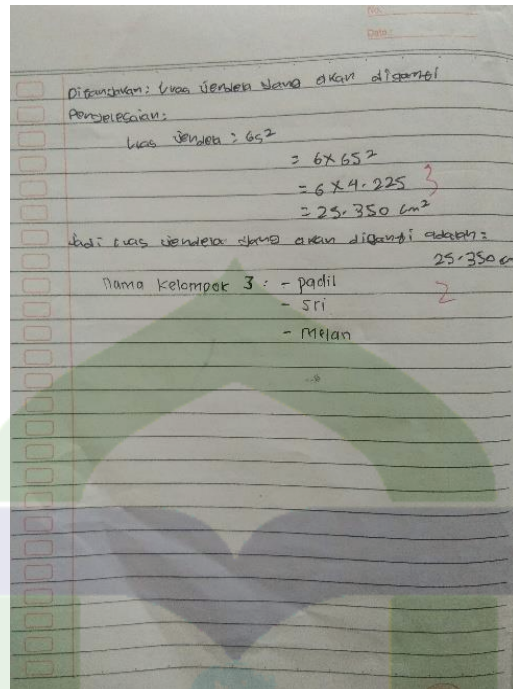 No.
Date:
Ditanyakan: Luas jendela yang akan diganti
Penyelesaian:
Luas jendela : 6s²
= 6 x 65²
= 6 x 4.225 3
= 25.350 cm²
Jadi luas jendela yang akan diganti adalah:
25.350 c
2
Nama Kelompok 3 : - padil
- Sri
- Melan